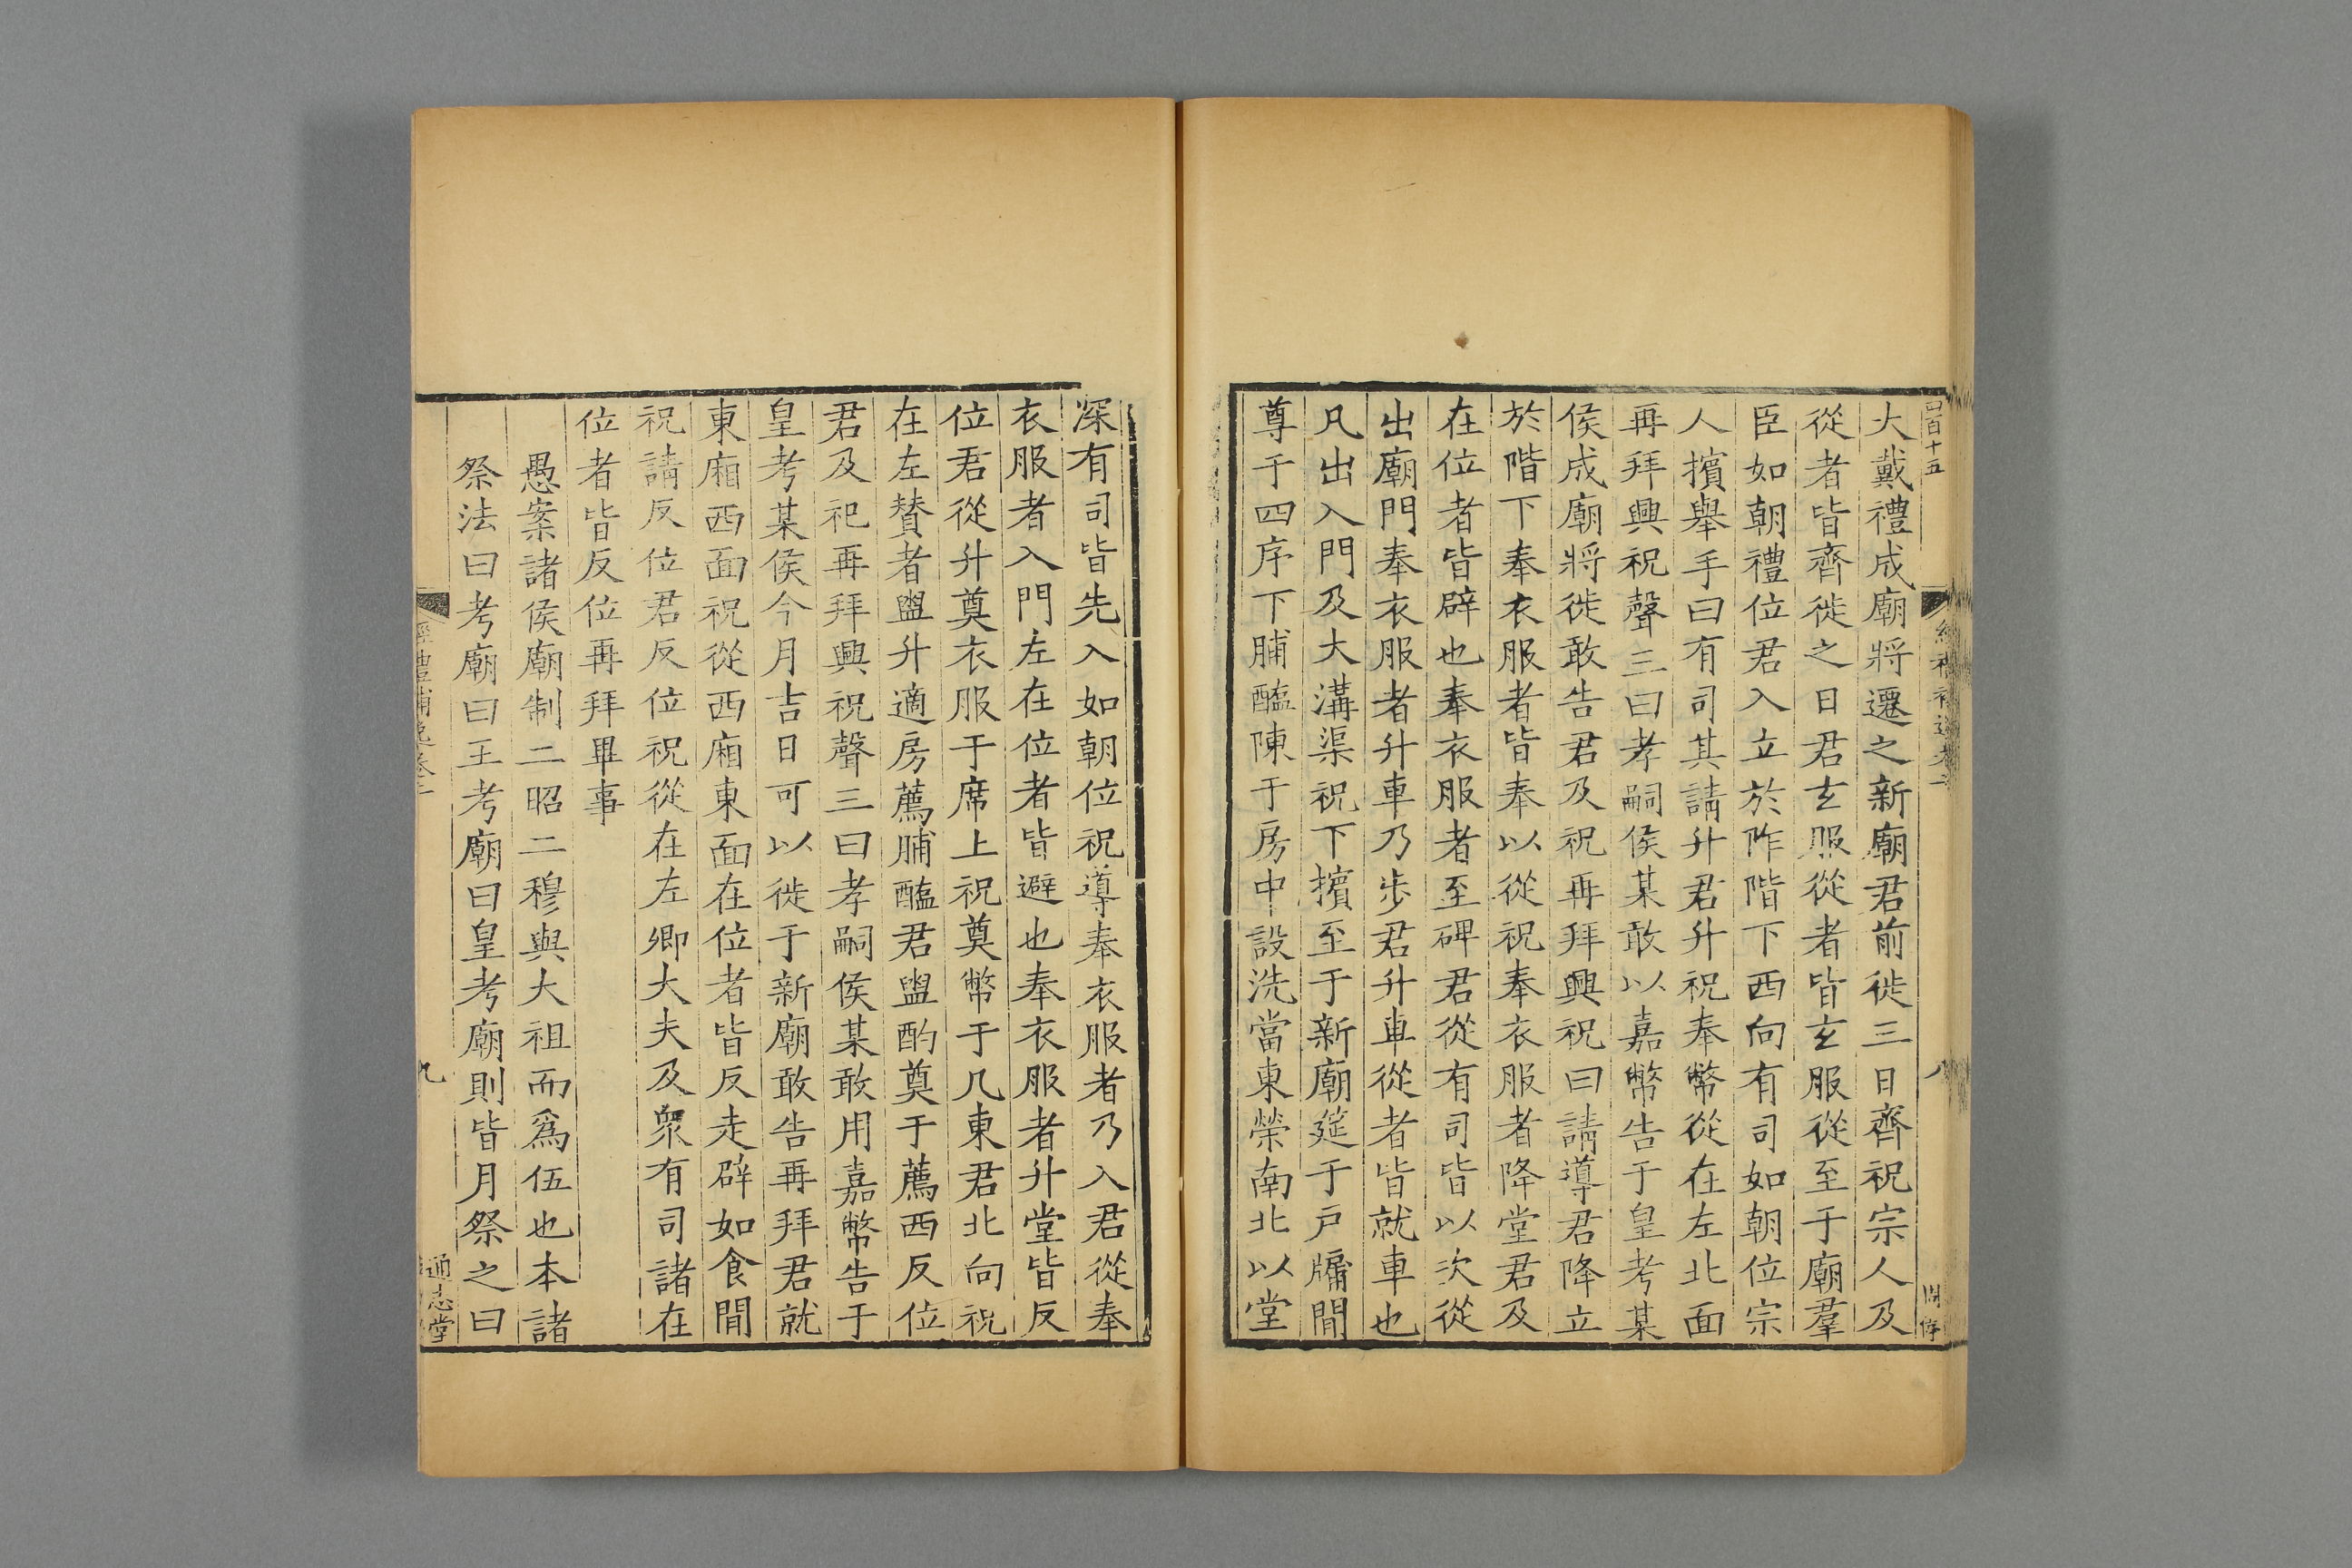 四百十五
大戴禮成廟將遷之新廟君前徙三日齊祝宗人及
從者皆齊徙之日君玄服從者皆玄服從至于廟羣
臣如朝禮位君入立於阼階下西向有司如朝位宗
人擯舉手曰有司其請升君升祝奉幣從在左北面
再拜興祝聲三曰孝嗣侯某敢以嘉幣告于皇考某
侯成廟將徙敢告君及祝再拜興祝曰請導君降立
於階下奉衣服者皆奉以從祝奉衣服者降堂君及
在位者皆辟也奉衣服者至碑君從有司皆以次從
出廟門奉衣服者升車乃步君升車從者皆就車也
凡出入門及大溝渠祝下擯至于新廟筵于戶牖間
尊于四序下脯醢陳于房中設洗當東榮南北以堂
深有司皆先入如朝位祝導奉衣服者乃入君從奉
衣服者入門左在位者皆避也奉衣服者升堂皆反
位君從升奠衣服于席上祝奠幣于几東君北向祝
在左贊者盥升適房薦脯醢君盥酌奠于薦西反位
君及祀再拜興祝聲三曰孝嗣侯某敢用嘉幣告于
皇考某侯今月吉日可以徙于新廟敢告再拜君就
東廂西面祝從西廂東面在位者皆反走辟如食間
祝請反位君反位祝從在左卿大夫及衆有司諸在
位者皆反位再拜畢事
愚案諸侯廟制二昭二穆與大祖而爲伍也本諸
祭法曰考廟曰王考廟曰皇考廟則皆月祭之曰
經禮補逸卷二
九
通志堂